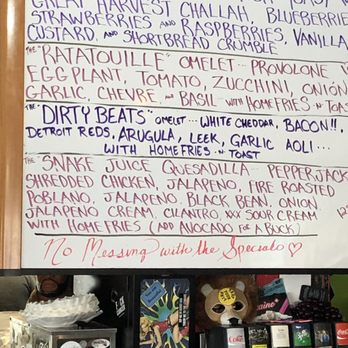 GREAT HARVEST CHALLAH, BLUEBERRIES
STRAWBERRIES AND RASPBERRIES, VANILLA
CUSTARD, AND SHORTBREAD CRUMBLE
THE "RATATOUILLE" OMELET... PROVOLONE
EGGPLANT, TOMATO, ZUCCHINI, ONION
GARLIC, CHEVRE, AND BASIL WITH HOMEFRIES N TOAST
THE "DIRTY BEATS" OMELET... WHITE CHEDDAR, BACON!!,
DETROIT REDS, ARUGULA, LEEK, GARLIC AOLI...
WITH HOMEFRIES N TOAST
THE "SNAKE JUICE" QUESADILLA... PEPPERJACK
SHREDDED CHICKEN, JALAPENO, FIRE ROASTED
POBLANO, JALAPENO, BLACK BEAN, ONION
JALAPENO CREAM, CILANTRO, XXX SOUR CREAM
WITH HOMEFRIES (ADD AVOCADO FOR A BUCK)
No Messing with the Specials ♡
Coke